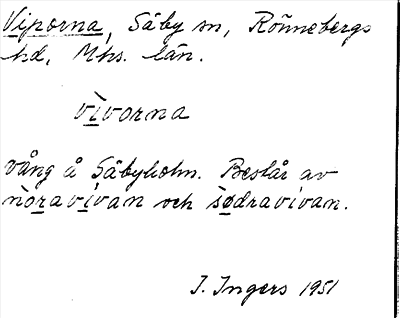 Viporna, Säby sn, Rönnebergs
hd, Mhs. län.
vìvorna
vång å Säbyholm. Består av
nòravivan och sødravivan.
I. Ingers 1951